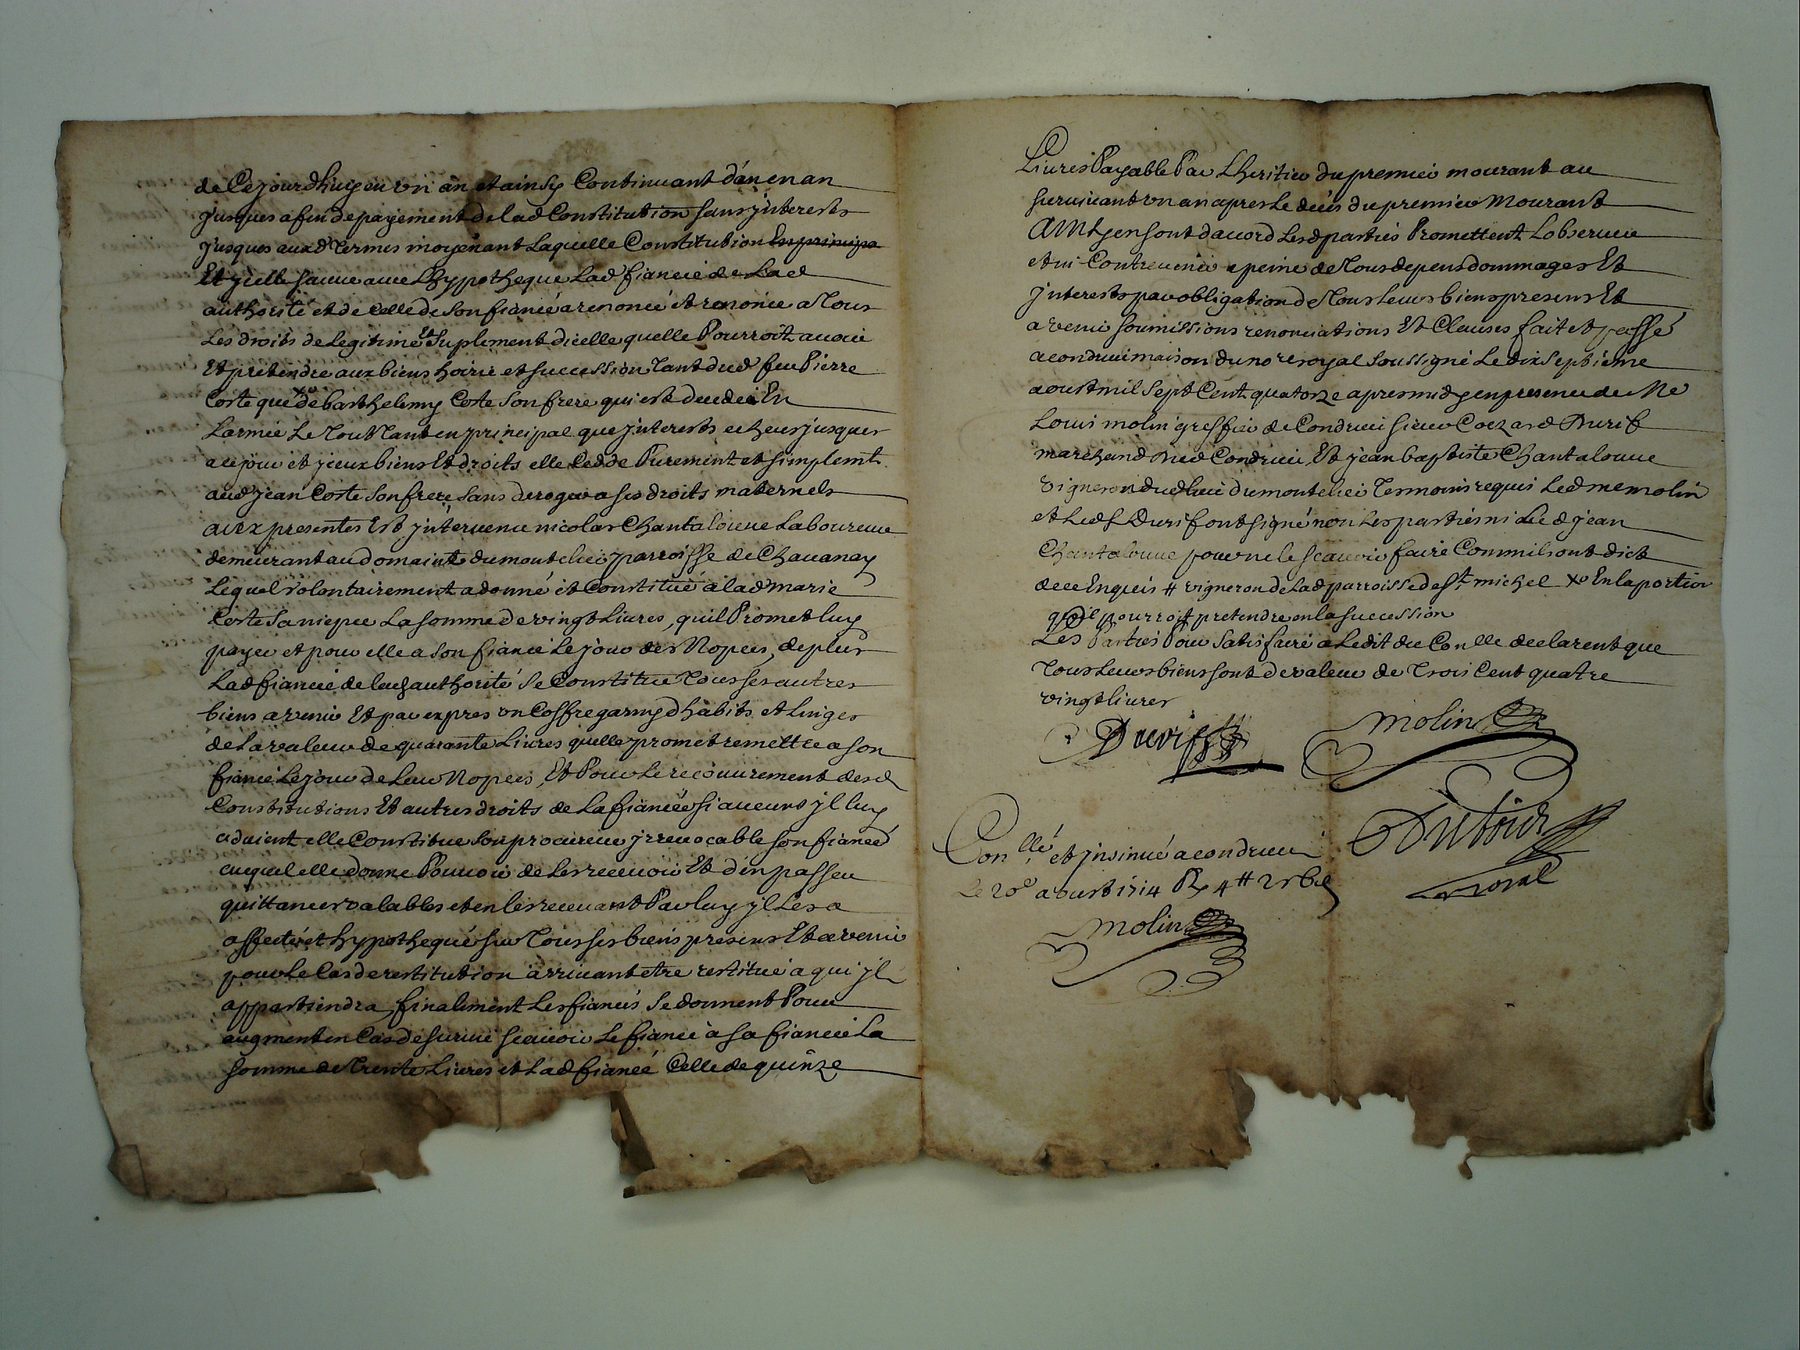 de Cejourdhuy en un an et ainsy Continuant dan en an
jusques a fin de payement de lad Constitution sans jnterests
jusques auxd Termes moyenant Laquelle Constitution
Et jcelle sauve avec Lhypotheque Lad fiancée de Lad
authorité et de Celle de son fiancé a renoncé et renonce a Tous
Les droits de Legitime Et Suplement dicelle quelle Pourroit avoir
Et pretendre aux biens hoirie et succession Tant dud feu Pierre
Coste que de barthelemy Coste Son frere qui est decedé En
Larmée Le Tout Tant en principal que jnterests echeus jusques
a ce jour et jceux biens Et droits elle Cedde Purement et simplemt
aud jean Coste son frere sans deroger a ses droits maternels
aux presentes Est jntervenu nicolas Chantalouue Laboureur
demeurant au domaine du montelier parroisse de Chavanay
Lequel volontairement a donné et Constitué a lad marie
Coste sa niepce La somme de vingt Livres, quil Promet luy
payer et pour elle a son fiancé Le jour des Nopces, de plus
Lad fiancée de lad authorité Se Constitue Tous ses autres
biens a venir Et par expres un Coffre garny dhabits et linges
de La valeur de quarante Livres quelle promet remettre a son
fiancé Le jour de Leur Nopces, Et Pour Le recouvrement desd
Constitutions Et autres droits de La fiancée si aucuns jl luy
adaient elle Constitue Son procureur jrrevocable son fiancé
auquel elle donne Pouvoir de Les recevoir Et den passer
quittances valables et en les recevant Par luy jl Les a
affecté et hypothequé sur Tous ses biens presens Et a venir
pour Le Cas de restitution arrivant etre restitué a qui jl
appartiendra, finalement Les fiancés Se donnent Pour
augment en Cas de survie scavoir Le fiancé a sa fiancée La
somme de Trente Livres et Lad fiancée Celle de quinze
Livres Payable Par Lheritier du premier mourant au
survivant un an apres Le deces du premier Mourant
Ainsy en sont dacord Lesd parties Promettent Lobserver
et ni Contrevenir a peine de Tous depens dommages Et
Jnterests par obligation de Tous Leurs biens presens Et
a venir soumissions renonciations Et Clauses fait et passé
a condrieu maison du nore royal Soussigné Le dix Septieme
aoust mil Sept Cent quatorze apres midy en presence de Me
Louis molin greffier de Condrieu sieur Durif
marchand dud Condrieu Et jean baptiste Chantalouue
vigneron dud lieu du montelier Temoins requis Led me molin
et Led sr Durif ont signé non Les parties ni Led jean
Chantalouue pour ne le scavoir faire Comm ils ont dict
de ce Enquis # vigneron de Lad parroisse de St michel En la portion
quil pourroit pretendre en la succession
Les Parties Pour Satisfaire a Ledit du Conlle declarent que
Tous Leurs biens sont de valeur de Trois Cent quatre
vingt livres
Durif
molin
Conllé et jnsinué a condrieu
Le 20e aoust 1714
molin
royal